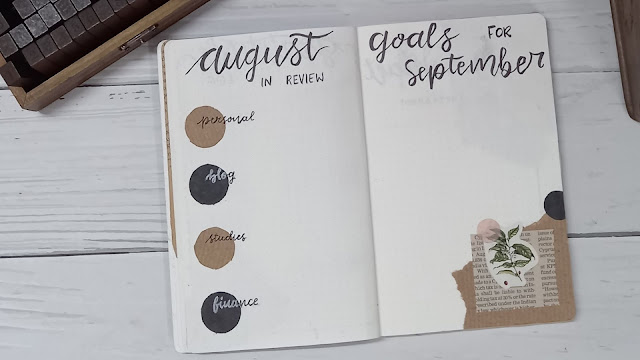 august
IN REVIEW
personal
blog
studies
finance
goals FOR
September